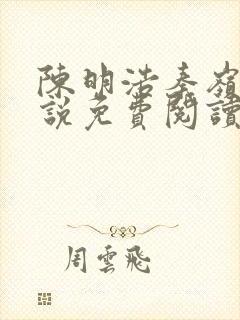 陳明浩秦嶺
説免費閱讀
周雲飛